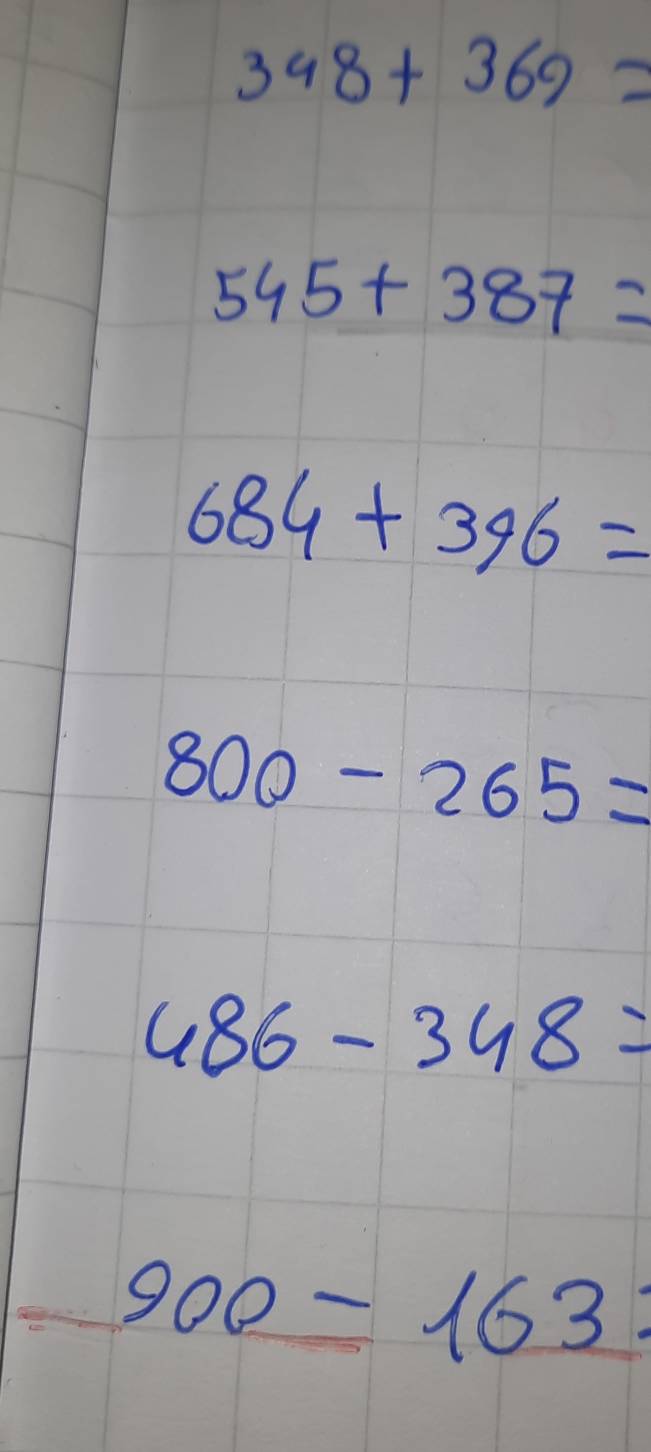 348 + 369 =
545 + 387 =
684 + 396 =
800 - 265 =
486 - 348 =
900 - 163 =